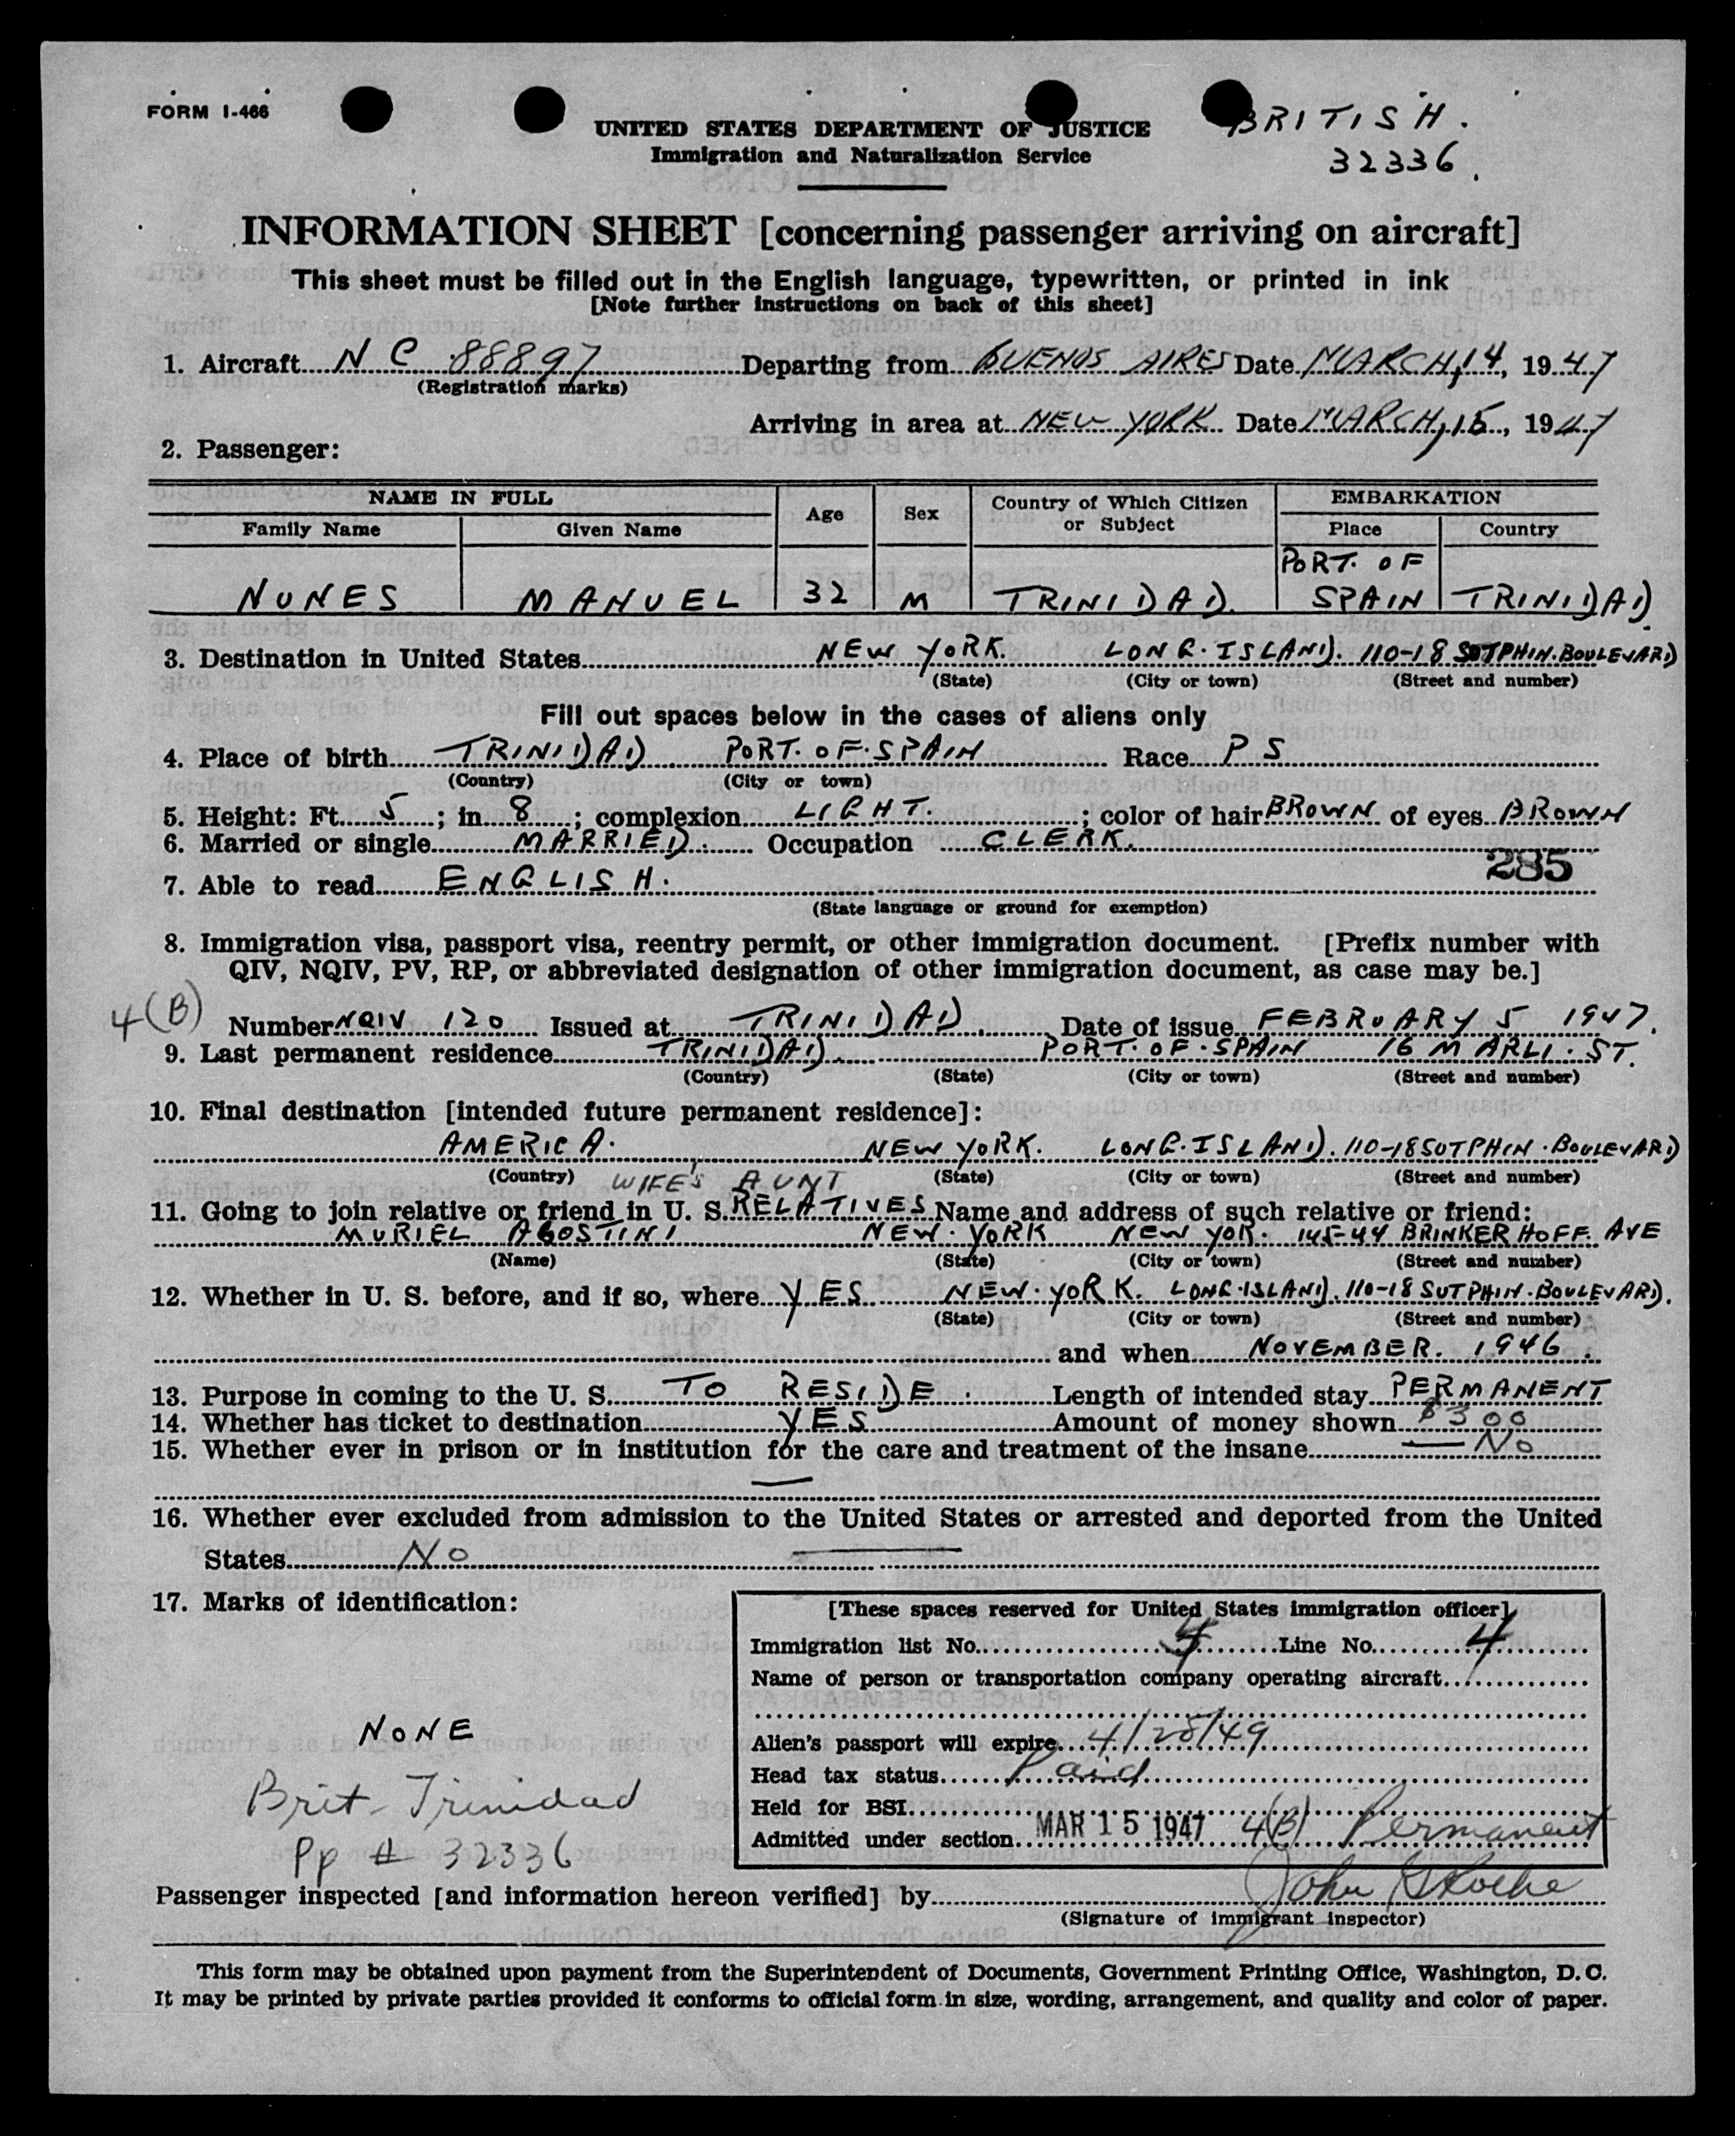 FORM I-466
BRITISH.
32336.
UNITED STATES DEPARTMENT OF JUSTICE
Immigration and Naturalization Service
INFORMATION SHEET [concerning passenger arriving on aircraft]
This sheet must be filled out in the English language, typewritten, or printed in ink
[Note further instructions on back of this sheet]
1. Aircraft NC 88897 Departing from BUENOS AIRES Date MARCH, 14, 1947
(Registration marks)
Arriving in area at NEW YORK Date MARCH, 15, 1947
2. Passenger:
NAME IN FULL Age Sex Country of Which Citizen or Subject EMBARKATION
Family Name Given Name Place Country
NUNES MANUEL 32 M TRINIDAD. PORT. OF SPAIN TRINIDAD.
3. Destination in United States NEW YORK. LONG. ISLAND. 110-18 SUTPHIN. BOULEVARD
(State) (City or town) (Street and number)
Fill out spaces below in the cases of aliens only
4. Place of birth TRINIDAD PORT. OF. SPAIN Race PS
(Country) (City or town)
5. Height: Ft. 5; in. 8; complexion LIGHT.; color of hair BROWN of eyes BROWN
6. Married or single MARRIED. Occupation CLERK.
285
7. Able to read ENGLISH.
(State language or ground for exemption)
8. Immigration visa, passport visa, reentry permit, or other immigration document. [Prefix number with
QIV, NQIV, PV, RP, or abbreviated designation of other immigration document, as case may be.]
4(B) Number NQIV 120 Issued at TRINIDAD. Date of issue FEBRUARY 5 1947.
9. Last permanent residence TRINIDAD. PORT. OF. SPAIN 16 MARLI. ST.
(Country) (State) (City or town) (Street and number)
10. Final destination [intended future permanent residence]:
AMERICA. NEW YORK. LONG. ISLAND. 110-18 SUTPHIN. BOULEVARD
(Country) (State) (City or town) (Street and number)
WIFE'S AUNT
11. Going to join relative or friend in U. S. RELATIVES Name and address of such relative or friend:
MURIEL AGOSTINI NEW. YORK NEW YOR. 145-44 BRINKERHOFF. AVE
(Name) (State) (City or town) (Street and number)
12. Whether in U. S. before, and if so, where YES NEW. YORK. LONG. ISLAND. 110-18 SUTPHIN. BOULEVARD.
(State) (City or town) (Street and number)
and when NOVEMBER. 1946.
13. Purpose in coming to the U. S. TO RESIDE. Length of intended stay PERMANENT
14. Whether has ticket to destination YES Amount of money shown $300
15. Whether ever in prison or in institution for the care and treatment of the insane — No
—
16. Whether ever excluded from admission to the United States or arrested and deported from the United
States No —
17. Marks of identification:
NONE
Brit-Trinidad
Pp # 32336
[These spaces reserved for United States immigration officer]
Immigration list No. 4 Line No. 4
Name of person or transportation company operating aircraft
Alien's passport will expire 4/28/49
Head tax status Paid
Held for BSI
Admitted under section MAR 15 1947 4(B) Permanent
Passenger inspected [and information hereon verified] by John Roche
(Signature of immigrant inspector)
This form may be obtained upon payment from the Superintendent of Documents, Government Printing Office, Washington, D. C.
It may be printed by private parties provided it conforms to official form in size, wording, arrangement, and quality and color of paper.